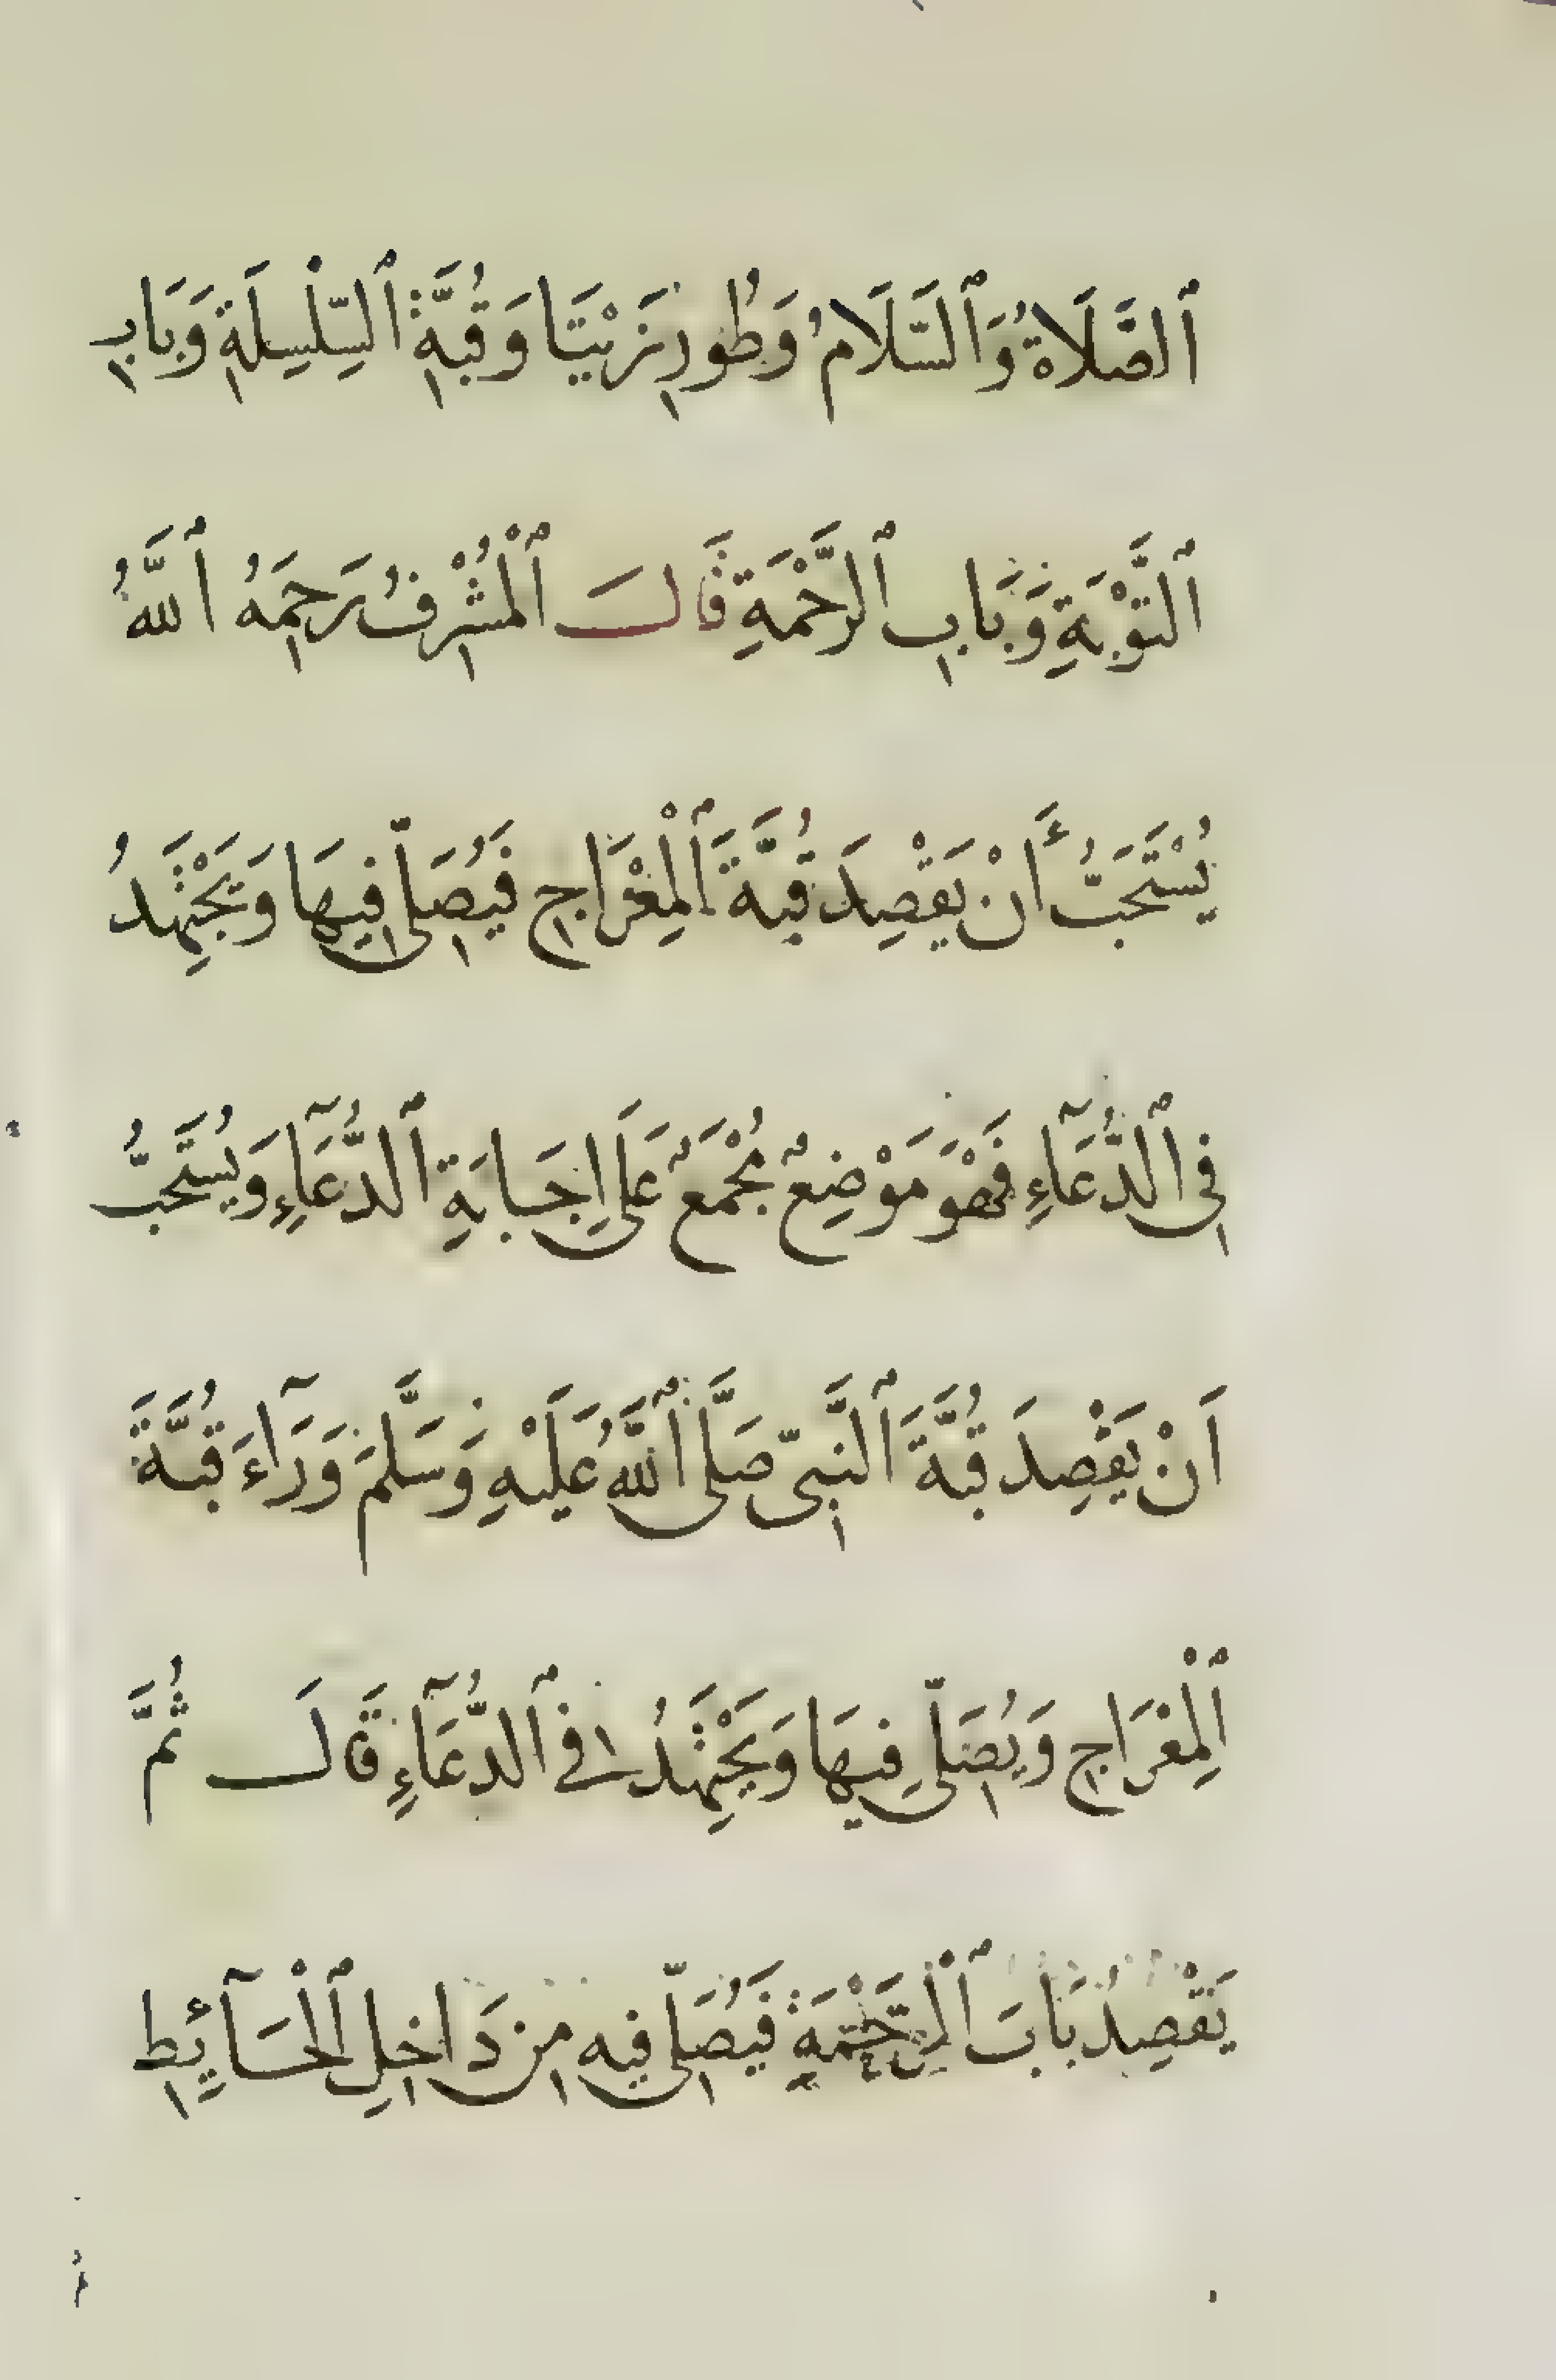 ٱلصَّلَاةُ وَٱلسَّلَامُ وَطُورِ زَيْتَا وَقُبَّةِ ٱلسِّلْسِلَةِ وَبَابِ
ٱلتَّوْبَةِ وَبَابِ ٱلرَّحْمَةِ قَالَ ٱلْمُشْرِفُ رَحِمَهُ ٱللَّهُ
يُسْتَحَبُّ أَنْ يَقْصِدَ قُبَّةَ ٱلْمِعْرَاجِ فَيُصَلِّي فِيهَا وَيَجْتَهِدُ
فِي ٱلدُّعَآءِ فَهْوَ مَوْضِعٌ مُجْمَعٌ عَلَى إِجَابَةِ ٱلدُّعَآءِ وَيُسْتَحَبُّ
اَنْ يَقْصِدَ قُبَّةَ ٱلنَّبِىِّ صَلَّى ٱللَّهُ عَلَيْهِ وَسَلَّمَ وَرَآءَ قُبَّةَ
ٱلْمِعْرَاجِ وَيُصَلِّي فِيهَا وَيَجْتَهِدُ فِي ٱلدُّعَآءِ قَالَ ثُمَّ
يَقْصِدُ بَابَ ٱلرَّحْمَةِ فَيُصَلِّي فِيهِ مِنْ دَاخِلِ ٱلْحَآئِطِ